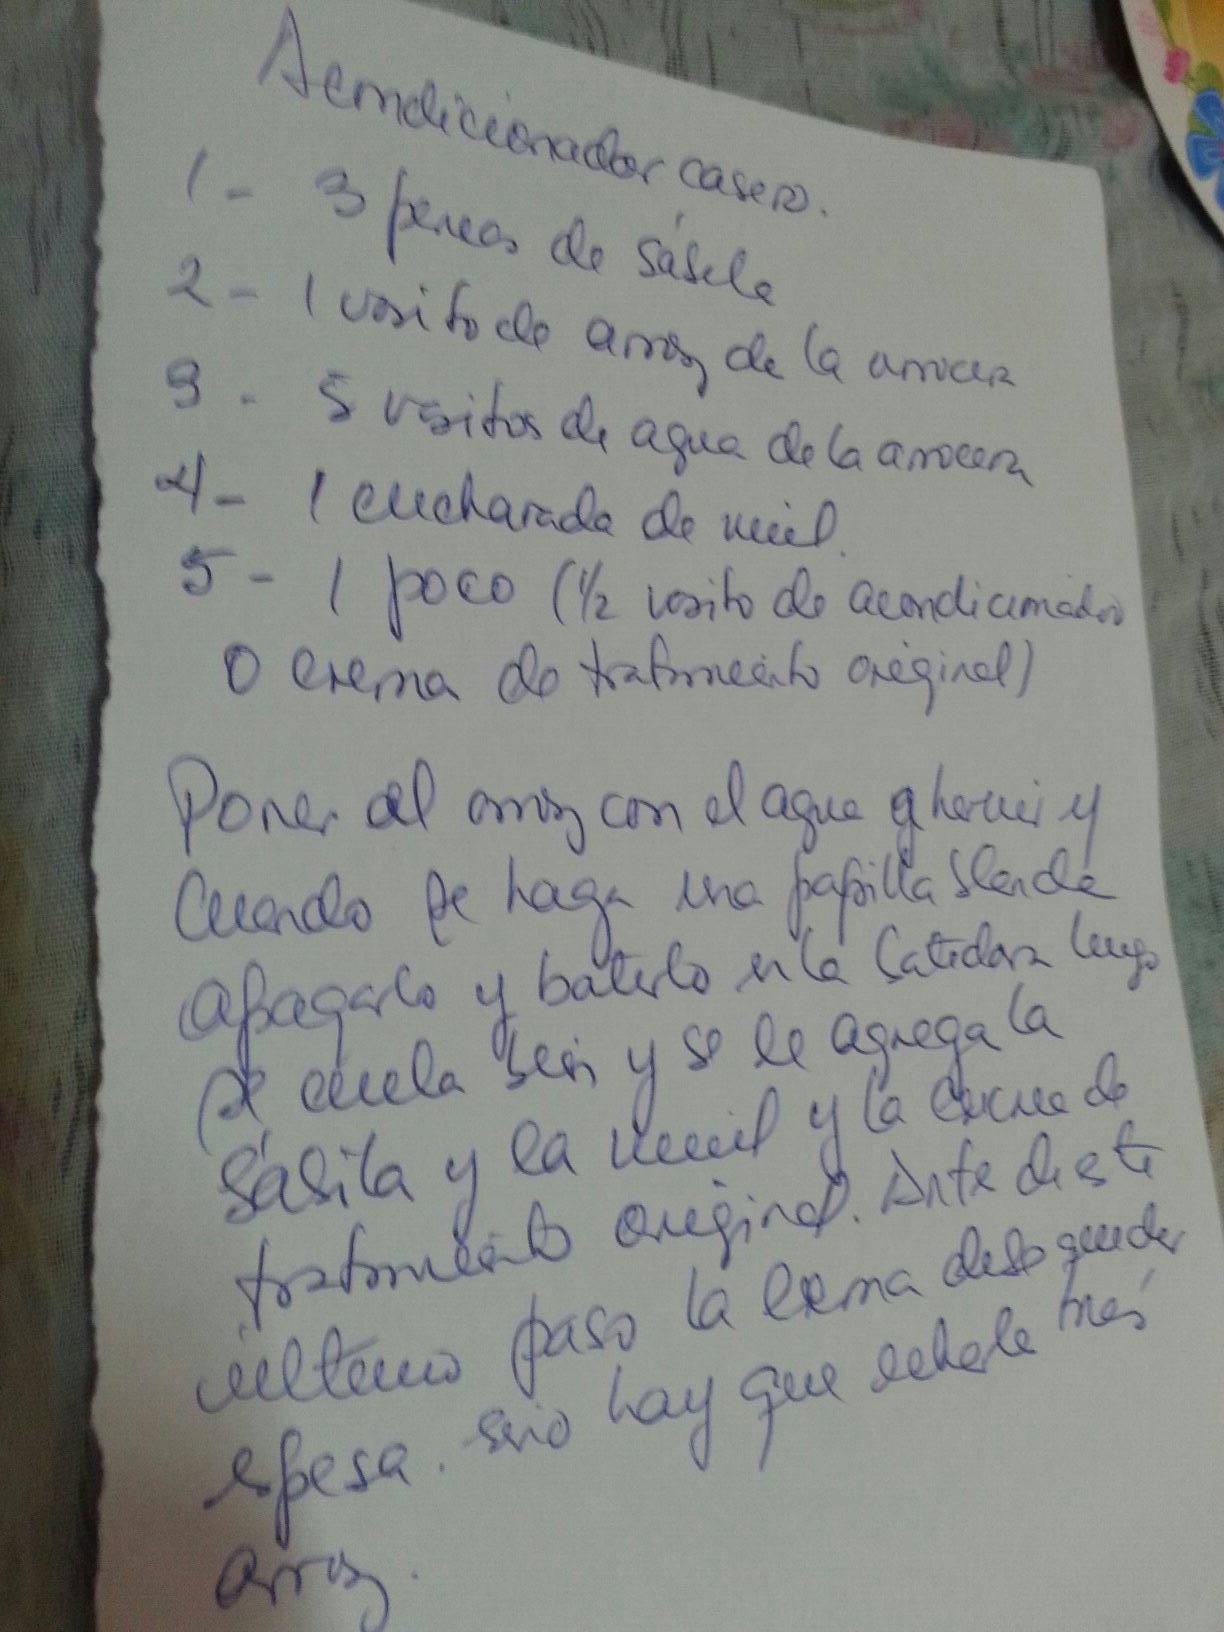 Acondicionador casero.
1 - 3 pencas de sásila
2 - 1 vasito de arroz de la arrocera
3 - 5 vasitos de agua de la arrocera
4 - 1 cucharada de miel.
5 - 1 poco (1/2 vasito de acondicionador
o crema de tratamiento original)
Poner el arroz con el agua a hervir y
Cuando se haga una papilla blanda
apagarlo y batirlo en la batidora luego
se cuela bien y se le agrega la
sásila y la miel y la crema de
tratamiento original. Ante de este
último paso la crema debe quedar
espesa. sino hay que echarle más
arroz.